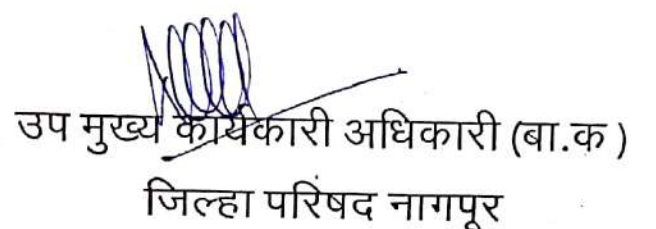 उप मुख्य कार्यकारी अधिकारी (बा.क )
जिल्हा परिषद नागपूर